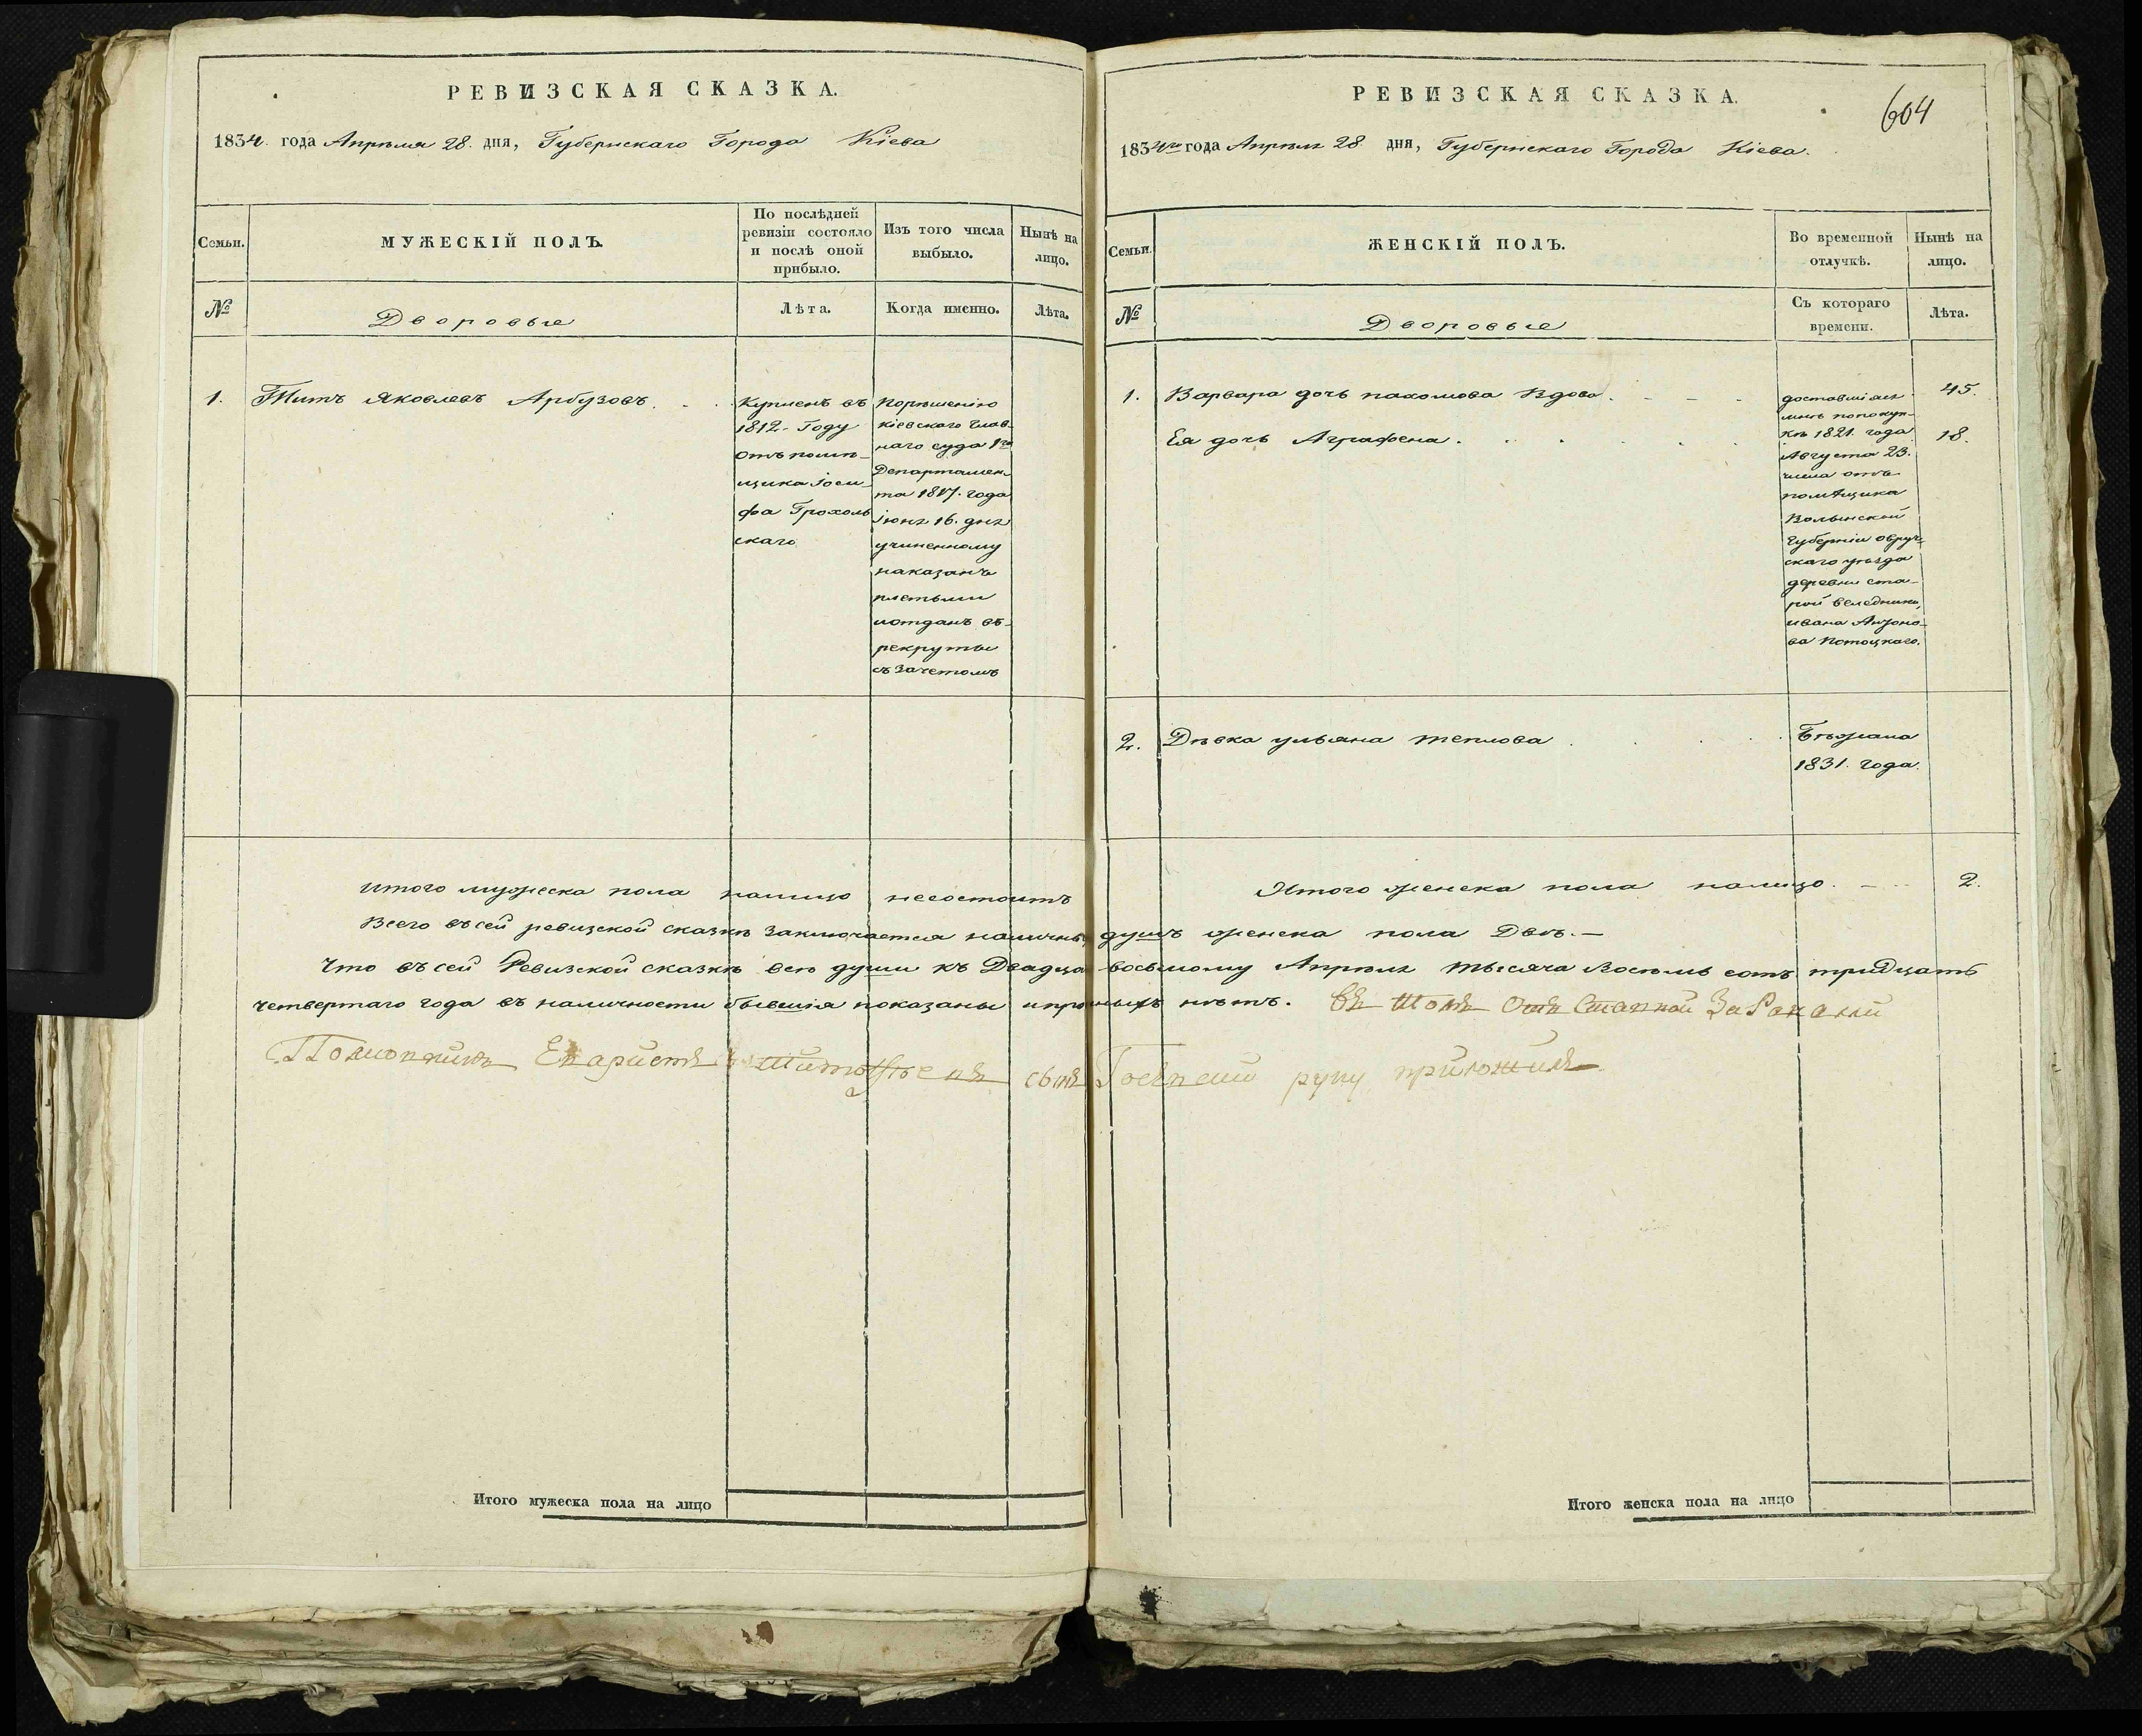 РЕВИЗСКАЯ СКАЗКА.
1834. года Апрѣля 28. дня, Губернскаго Города Кіева
Семьи.
МУЖЕСКІЙ ПОЛЪ.
По послѣдней
ревизіи состояло
и послѣ оной
прибыло.
Изъ того числа
выбыло.
Нынѣ на
лицо.
№
Дворовые
Лѣта.
Когда именно.
Лѣта.
1.
Титъ Яковлевъ Арбузовъ.
Купленъ въ
1812- Году
отъ помѣ-
щика Іоси-
фа Грохоль
скаго
Порѣшенію
Кіевскаго Глав-
наго суда 1го
Департамен-
та 1817. года
іюня 16. дня
учиненному
наказанъ
плетьми
иотданъ въ-
рекруты
съ Зачетомъ
итого мужеска пола налицо несостоитъ
РЕВИЗСКАЯ СКАЗКА.
604
1834го года Апрѣля 28 дня, Губернскаго Города Кіева.
Семьи.
ЖЕНСКІЙ ПОЛЪ.
Во временной
отлучкѣ.
Нынѣ на
лицо.
№
Дворовые
Съ котораго
времени.
Лѣта.
1.
Варвара дочь пахомова Вдова. 45.
Ея дочь Аграфена. 18.
доставшіася
мнѣ попокуп-
кѣ 1821. года
Августа 23.
числа отъ
помѣщика
Волынской
Губерніи овруч-
скаго уѣзда
деревни ста-
рой веледники,
ивана Антоно-
ва Потоцкаго.
2. Дѣвка ульяна теплова
Бѣжала
1831. года.
Итого женска пола налицо. 2.
Всего въсей ревизской сказкѣ заключается наличныхъ душъ женска пола Двѣ.—
Что въсей Ревизской сказкѣ всѣ души къ Двадцать восьмому Апрѣля тысяча Восемь сотъ тридцать
четвертаго года въ наличности бывшія показаны ипрописныхъ нѣтъ.
сынъ руку приложилъ
Итого мужеска пола на лицо
Итого женска пола на лицо